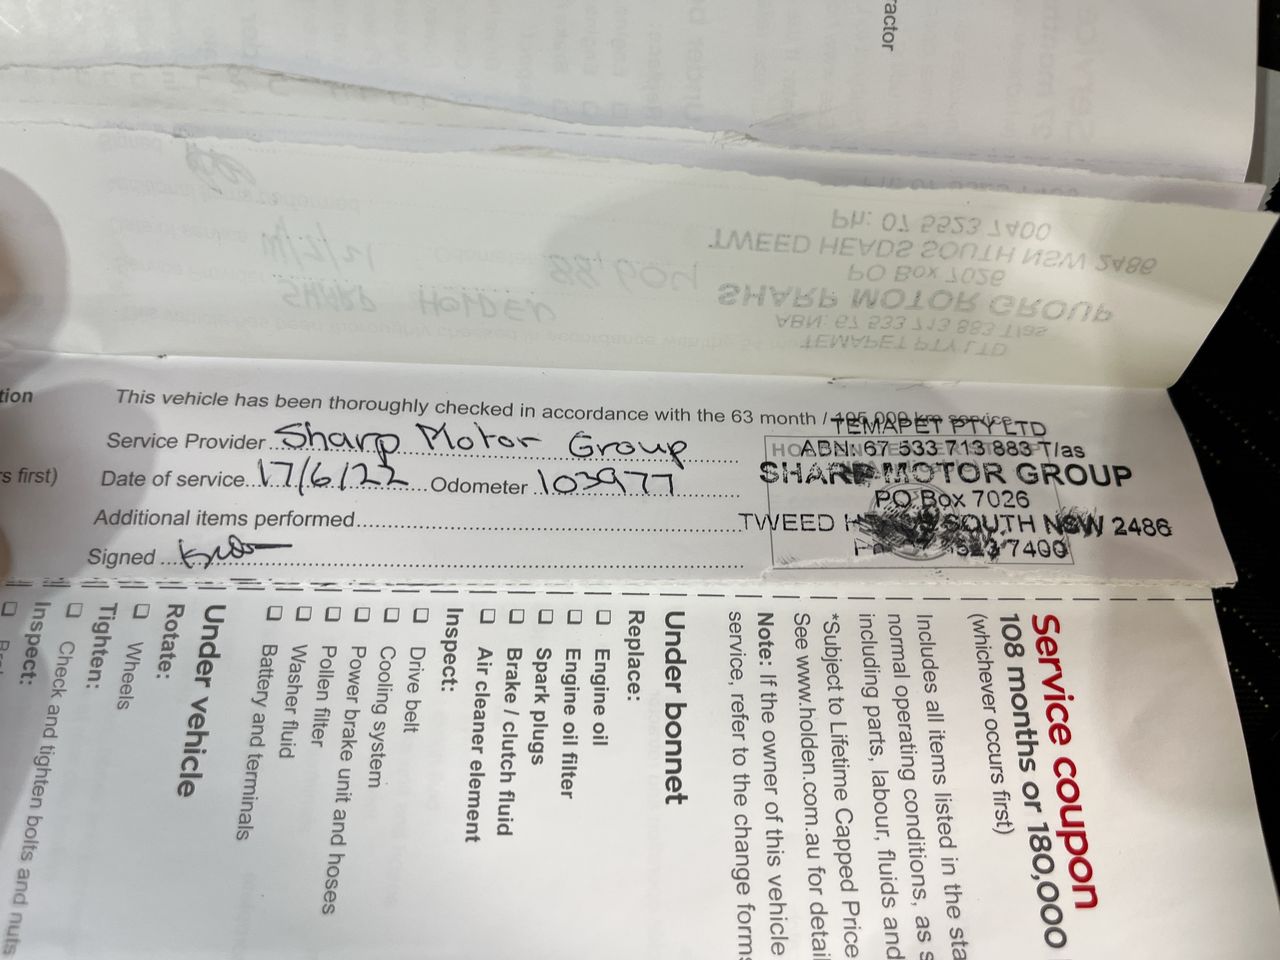 actor
Ph: 07 5523 7400
TWEED HEADS SOUTH NSW 2486
PO Box 7026
SHARP MOTOR GROUP
ABN: 67 533 713 883 T/as
TEMAPET PTY LTD
SHARP HOLDEN
tion
This vehicle has been thoroughly checked in accordance with the 63 month / 105,000 km service
Service Provider Sharp Motor Group
s first)
Date of service 17/6/22 Odometer 103977
Additional items performed
Signed
TEMAPET PTY LTD
ABN: 67 533 713 883 T/as
SHARP MOTOR GROUP
PO Box 7026
TWEED SOUTH NSW 2486
7400
Service coupon
108 months or 180,000
(whichever occurs first)
Includes all items listed in the sta
normal operating conditions, as s
including parts, labour, fluids and
*Subject to Lifetime Capped Price
See www.holden.com.au for detail
Note: If the owner of this vehicle
service, refer to the change form
Under bonnet
Replace:
Engine oil
Engine oil filter
Spark plugs
Brake / clutch fluid
Air cleaner element
Inspect:
Drive belt
Cooling system
Power brake unit and hoses
Pollen filter
Washer fluid
Battery and terminals
Under vehicle
Rotate:
Wheels
Tighten:
Check and tighten bolts and nuts
Inspect: